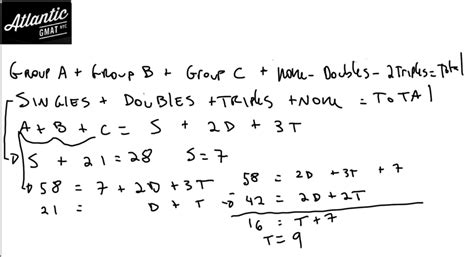 Atlantic
GMAT NYC
GROUP A + GROUP B + GROUP C + NONE - DOUBLES - 2TRIPLES = TOTAL
SINGLES + DOUBLES + TRIPLES + NONE = TOTAL
A + B + C = S + 2D + 3T
S + 21 = 28 S = 7
58 = 7 + 2D + 3T
21 = D + T
58 = 2D + 3T + 7
42 = 2D + 2T
16 = T + 7
T = 9